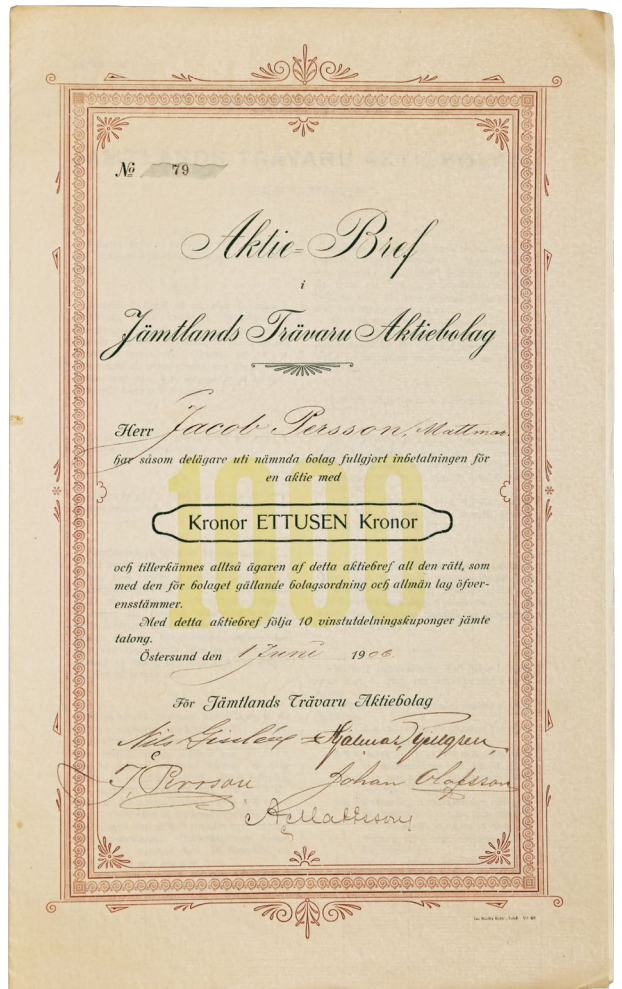 No 79
Aktie-Bref
i
Jämtlands Trävaru Aktiebolag
Herr Jacob Persson, Mattmar.
har såsom delägare uti nämnda bolag fullgjort inbetalningen för
en aktie med
1000
Kronor ETTUSEN Kronor
och tillerkännes alltså ägaren af detta aktiebref all den rätt, som
med den för bolaget gällande bolagsordning och allmän lag öfver-
ensstämmer.
Med detta aktiebref följa 10 vinstutdelningskuponger jämte
talong.
Östersund den 1 Juni 1906
För Jämtlands Trävaru Aktiebolag
Nils Hjalmar
J. Persson Johan Olofsson
A. Mattsson